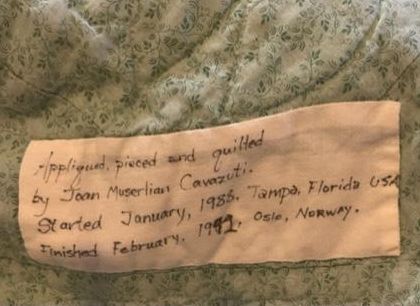 Appliqued, pieced and quilted
by Joan Muserlian Cavazuti.
Started January, 1988. Tampa, Florida USA
Finished February. 1992. Oslo, Norway.